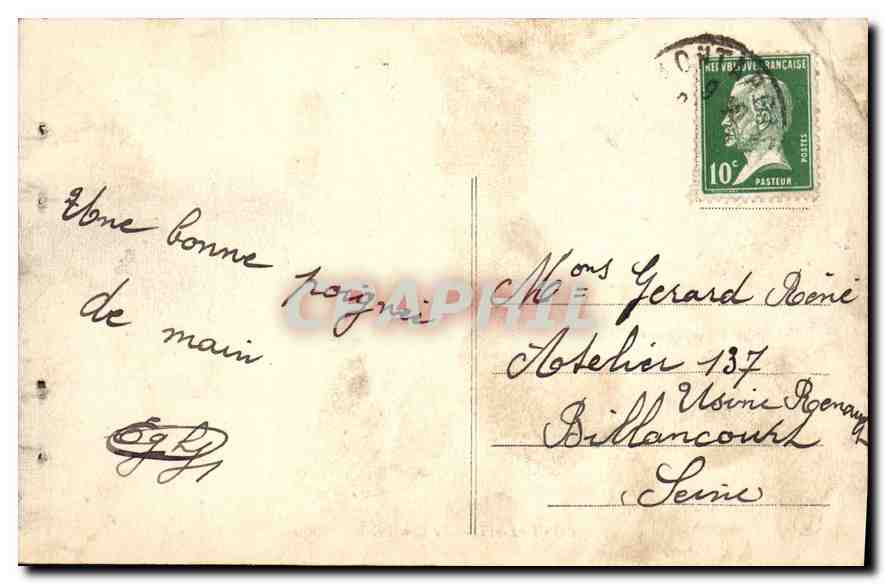 Une bonne poignei
de main
CPAPHIL
RÉPUBLIQUE FRANÇAISE
10c
POSTES
PASTEUR
Mons Gerard Réné
Atelier 137
Usine Renault
Billancourt
Seine